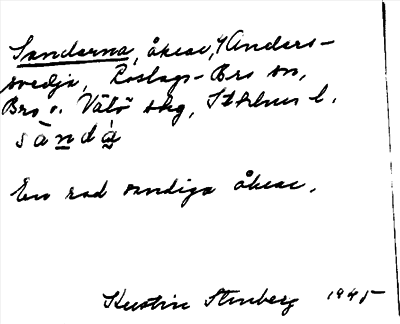 Sandarna, åkrar, Anders-
svedja, Roslags-Bro sn,
Bro o. Vätö skg, Sthlms l.
sànda
En rad sandiga åkrar.
Kerstin Stenberg 1945